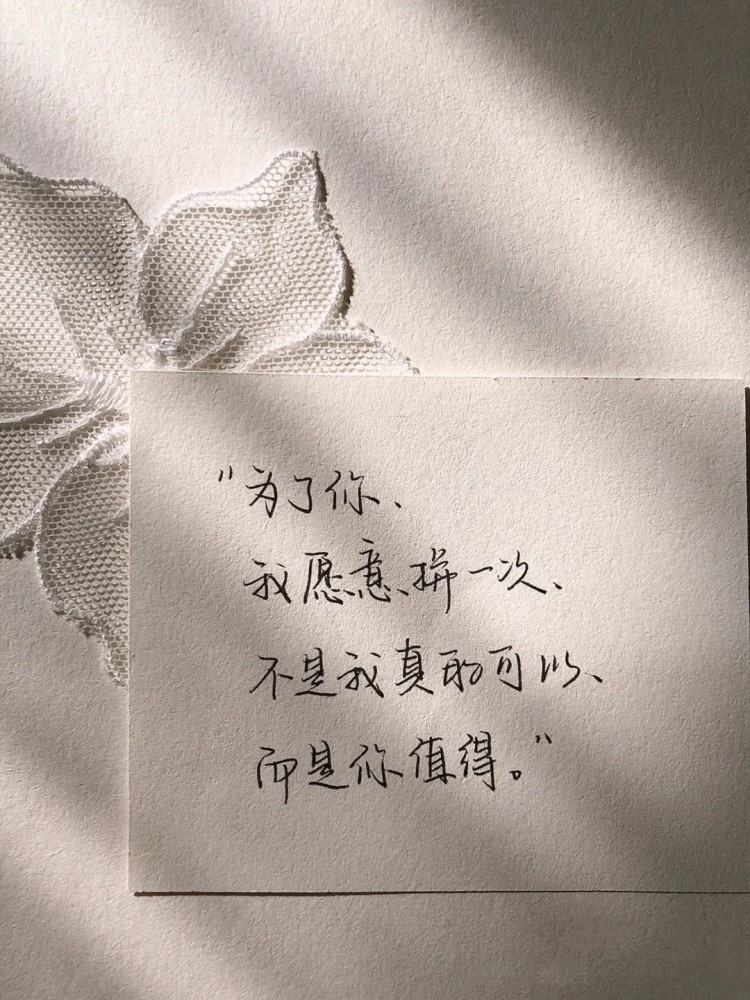 "为了你、
我愿意、拼一次、
不是我真的可以、
而是你值得。"